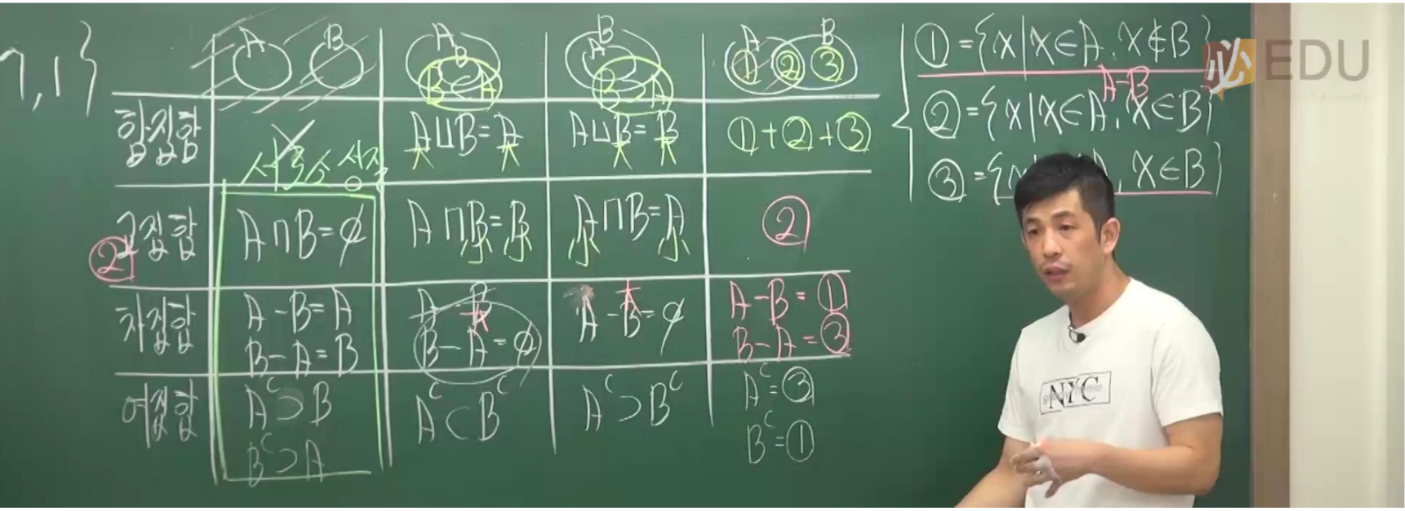 7, 1}
A B
A B B A
B A B A
A B ① ② ③
합집합
서로소
A∪B=A
A∪B=B
①+②+③
교집합
②
A∩B=∅
A∩B=B
A∩B=A
②
차집합
A-B=A
B-A=B
B-A=∅
A-B=∅
A-B=①
B-A=③
여집합
Aᶜ⊃B
Bᶜ⊃A
Aᶜ⊂Bᶜ
Aᶜ⊃Bᶜ
Aᶜ=③
Bᶜ=①
①={x|x∈A, x∉B}
A-B
②={x|x∈A, x∈B}
③={x| A, x∈B}
必 EDU
NYC